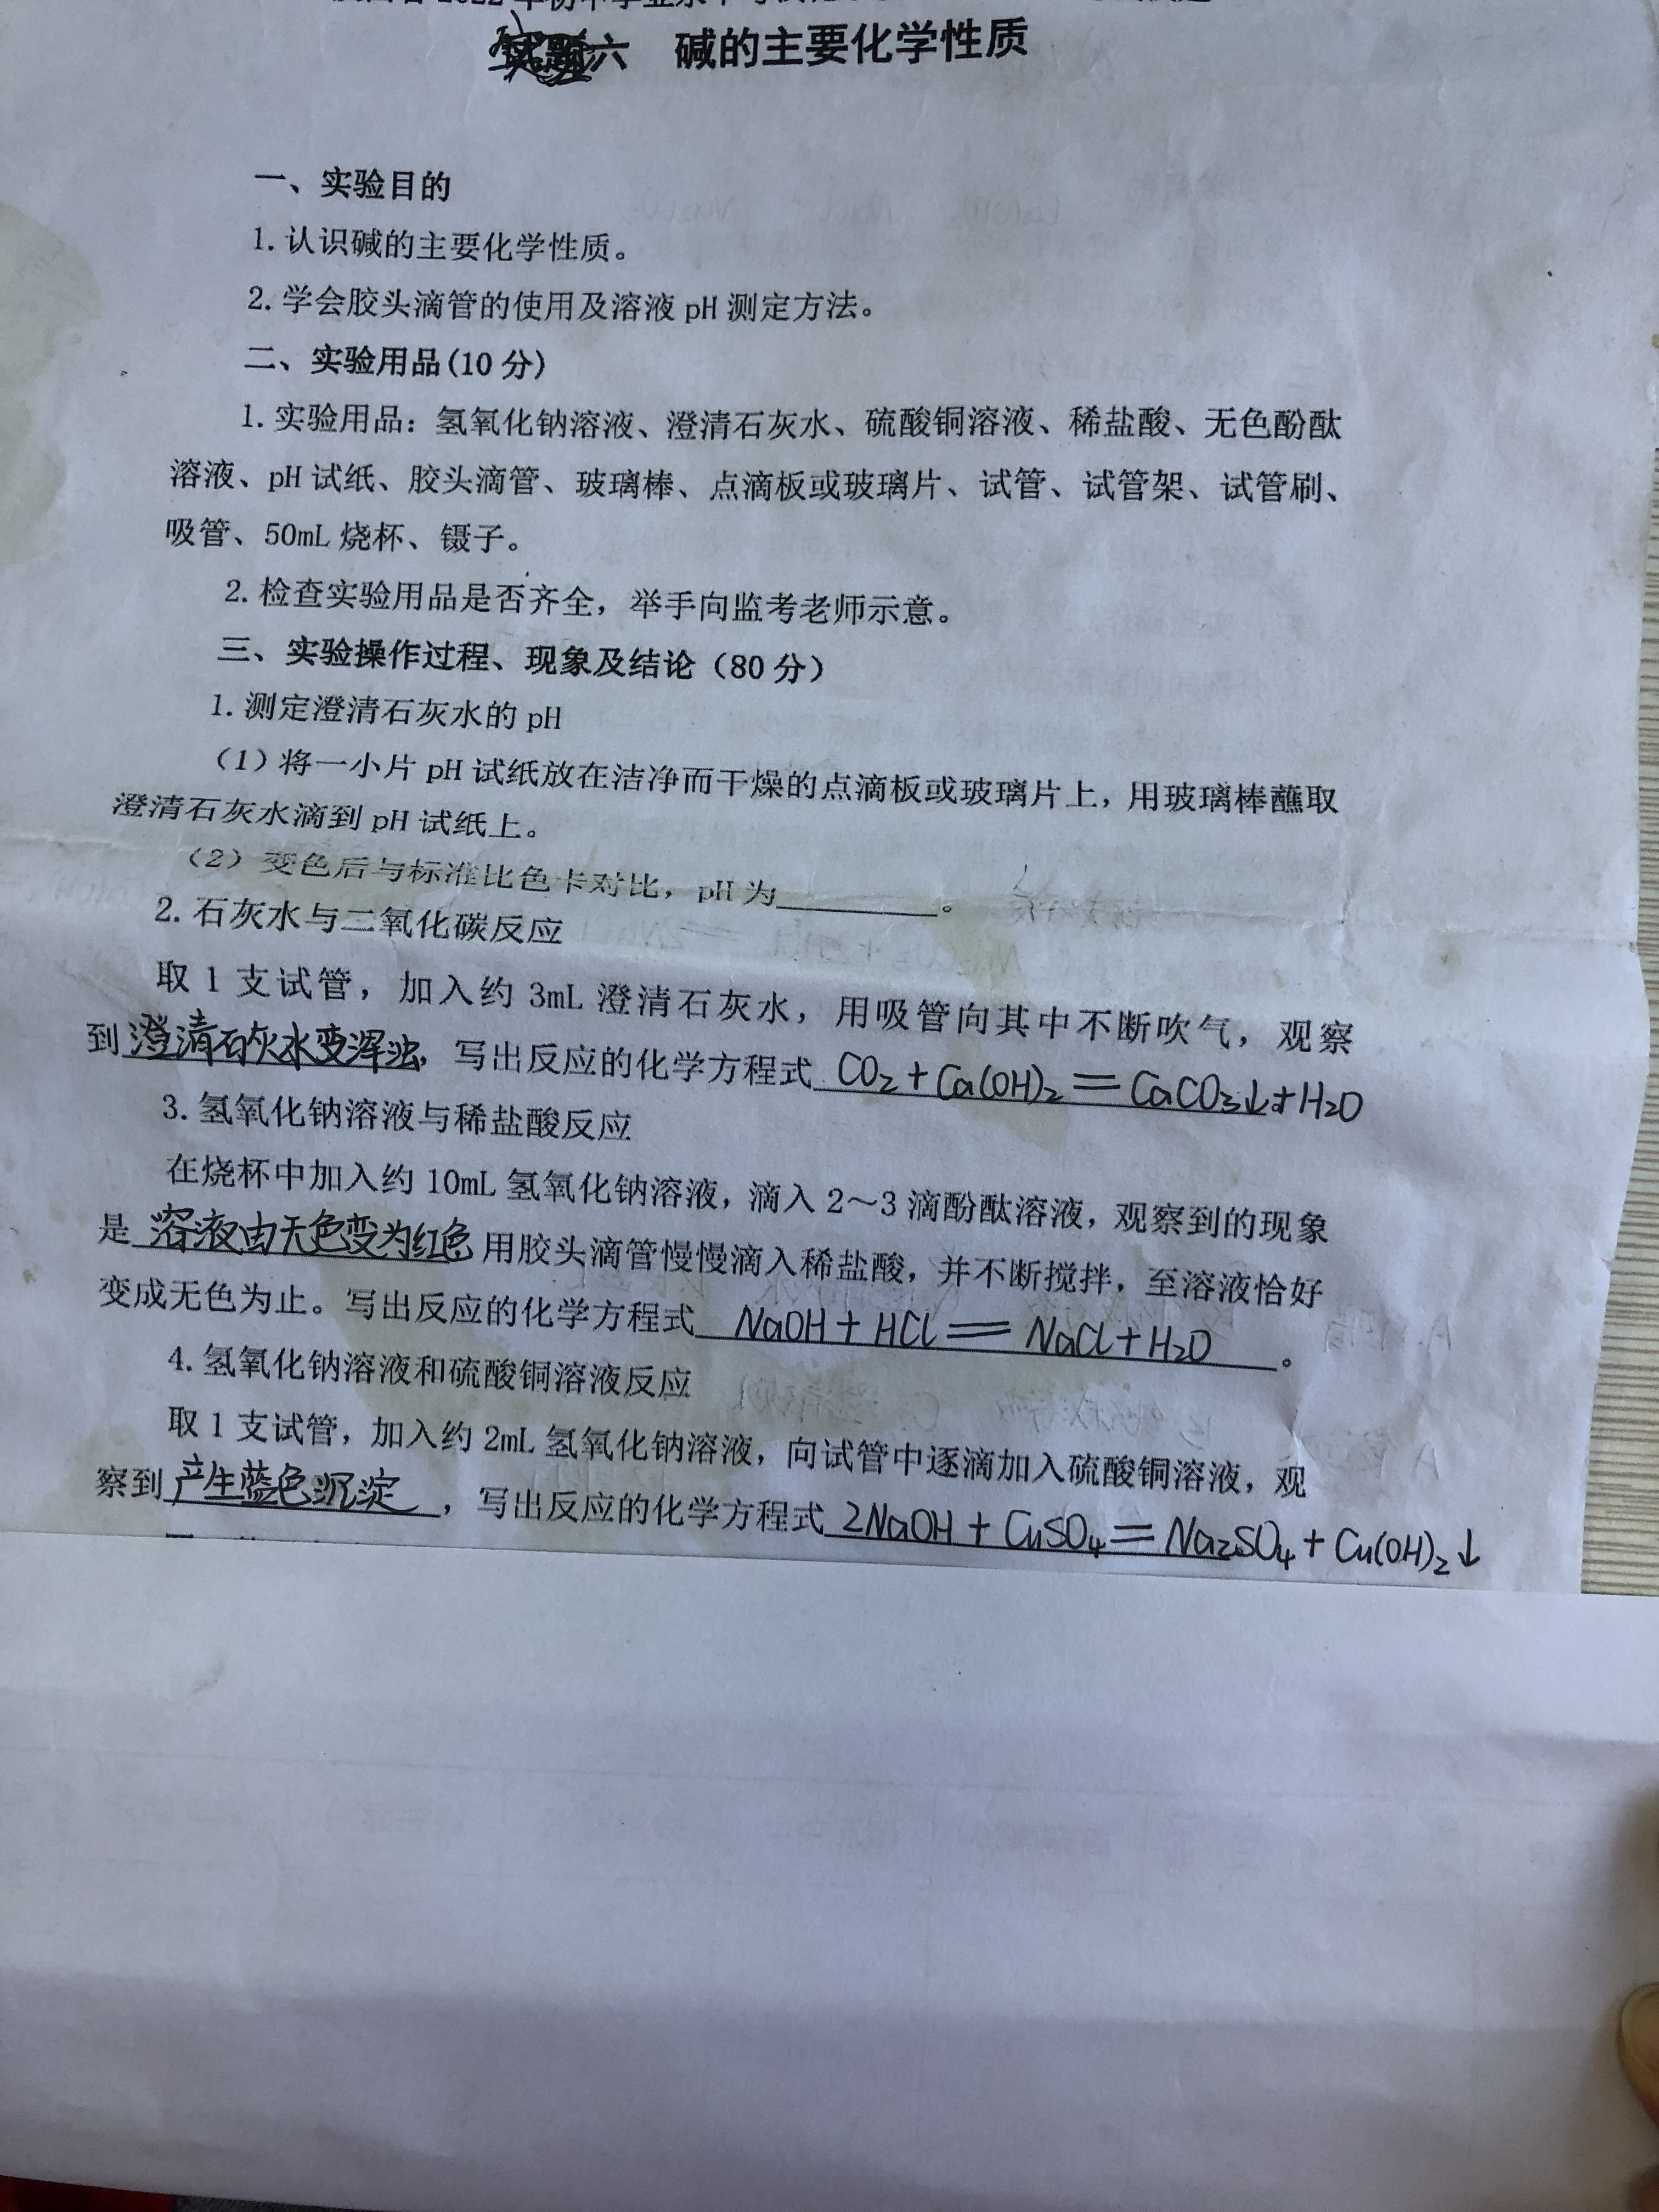 六 碱的主要化学性质
一、实验目的
1.认识碱的主要化学性质。
2.学会胶头滴管的使用及溶液 pH 测定方法。
二、实验用品(10 分)
1.实验用品：氢氧化钠溶液、澄清石灰水、硫酸铜溶液、稀盐酸、无色酚酞
溶液、pH 试纸、胶头滴管、玻璃棒、点滴板或玻璃片、试管、试管架、试管刷、
吸管、50mL 烧杯、镊子。
2.检查实验用品是否齐全，举手向监考老师示意。
三、实验操作过程、现象及结论（80 分）
1.测定澄清石灰水的 pH
（1）将一小片 pH 试纸放在洁净而干燥的点滴板或玻璃片上，用玻璃棒蘸取
澄清石灰水滴到 pH 试纸上。
（2）变色后与标准比色卡对比，pH 为________。
2.石灰水与二氧化碳反应
取 1 支试管，加入约 3mL 澄清石灰水，用吸管向其中不断吹气，观察
到 澄清石灰水变浑浊，写出反应的化学方程式 CO₂+Ca(OH)₂=CaCO₃↓+H₂O
3.氢氧化钠溶液与稀盐酸反应
在烧杯中加入约 10mL 氢氧化钠溶液，滴入 2～3 滴酚酞溶液，观察到的现象
是 溶液由无色变为红色 用胶头滴管慢慢滴入稀盐酸，并不断搅拌，至溶液恰好
变成无色为止。写出反应的化学方程式 NaOH+HCl=NaCl+H₂O 。
4.氢氧化钠溶液和硫酸铜溶液反应
取 1 支试管，加入约 2mL 氢氧化钠溶液，向试管中逐滴加入硫酸铜溶液，观
察到 产生蓝色沉淀 ，写出反应的化学方程式 2NaOH+CuSO₄=Na₂SO₄+Cu(OH)₂↓